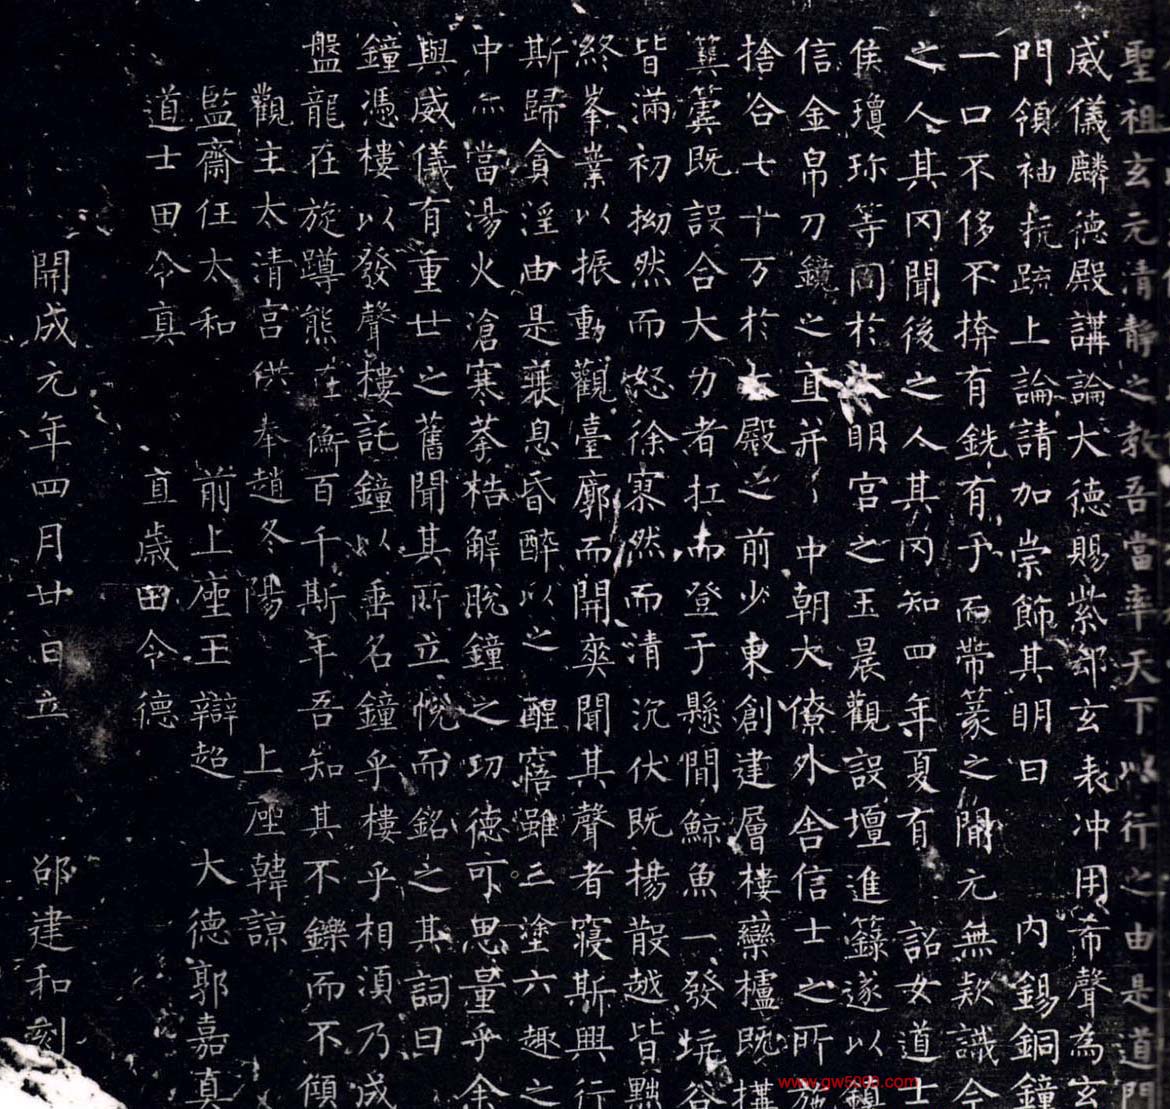 聖祖玄元清靜之教吾當率天下以行之由是道門
威儀麟德殿講論大德賜紫郄玄表冲用希聲為玄
門領袖抗疏上論請加崇飾其明日 内錫銅鐘
一口不侈不揜有銑有于而帶篆之間元無欵識今
之人其罔聞後之人其罔知四年夏有 詔女道士
侯瓊珎等同於大明宮之玉晨觀設壇進籙遂以鎮
信金帛刀鏡之直并中朝大僚外舍信士之所施
捨合七十万於大殿之前少東創建層樓欒櫨既構
簨簴既設合大力者扛而登于懸間鯨魚一發坑谷
皆滿初拗然而怒徐寥然而清沉伏既楊散越皆黜
終峯業以振動觀臺廓而開爽聞其聲者寢斯興行
斯歸貪淫由是襄息昏醉以之醒寤雖三塗六趣之
中亦當湯火滄寒拲梏解脫鐘之功德可思量乎余
與威儀有重世之舊聞其所立悅而銘之其詞曰
鐘憑樓以發聲樓託鐘以垂名鐘乎樓乎相須乃成
盤龍在旋蹲熊在衡百千斯年吾知其不鑠而不傾
觀主太清宮供奉趙冬陽 上座韓諒
監齋任太和 前上座王辯超 大德郭嘉真
道士田令真 直歲田令德
開成元年四月廿日立 邵建和刻
www.gw5000.com